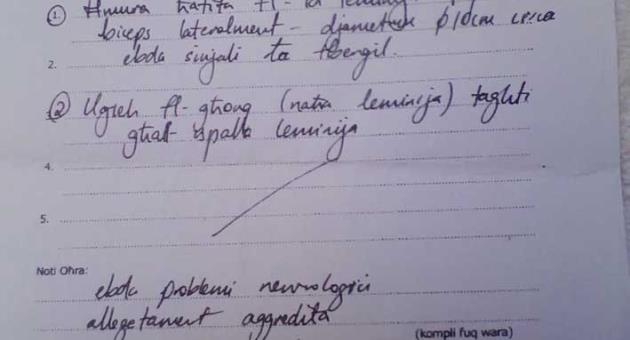 ① Hmura ħafifa fl-
biceps lateralment - djametru
2. ebda sinjali ta tbenġil.
② Uġieħ fl-għonq (naħa leminija) tagħti
għall-ispalla leminija
4.
5.
Noti Oħra:
ebda problemi newroloġiċi
allegatament aggredita
(kompli fuq wara)